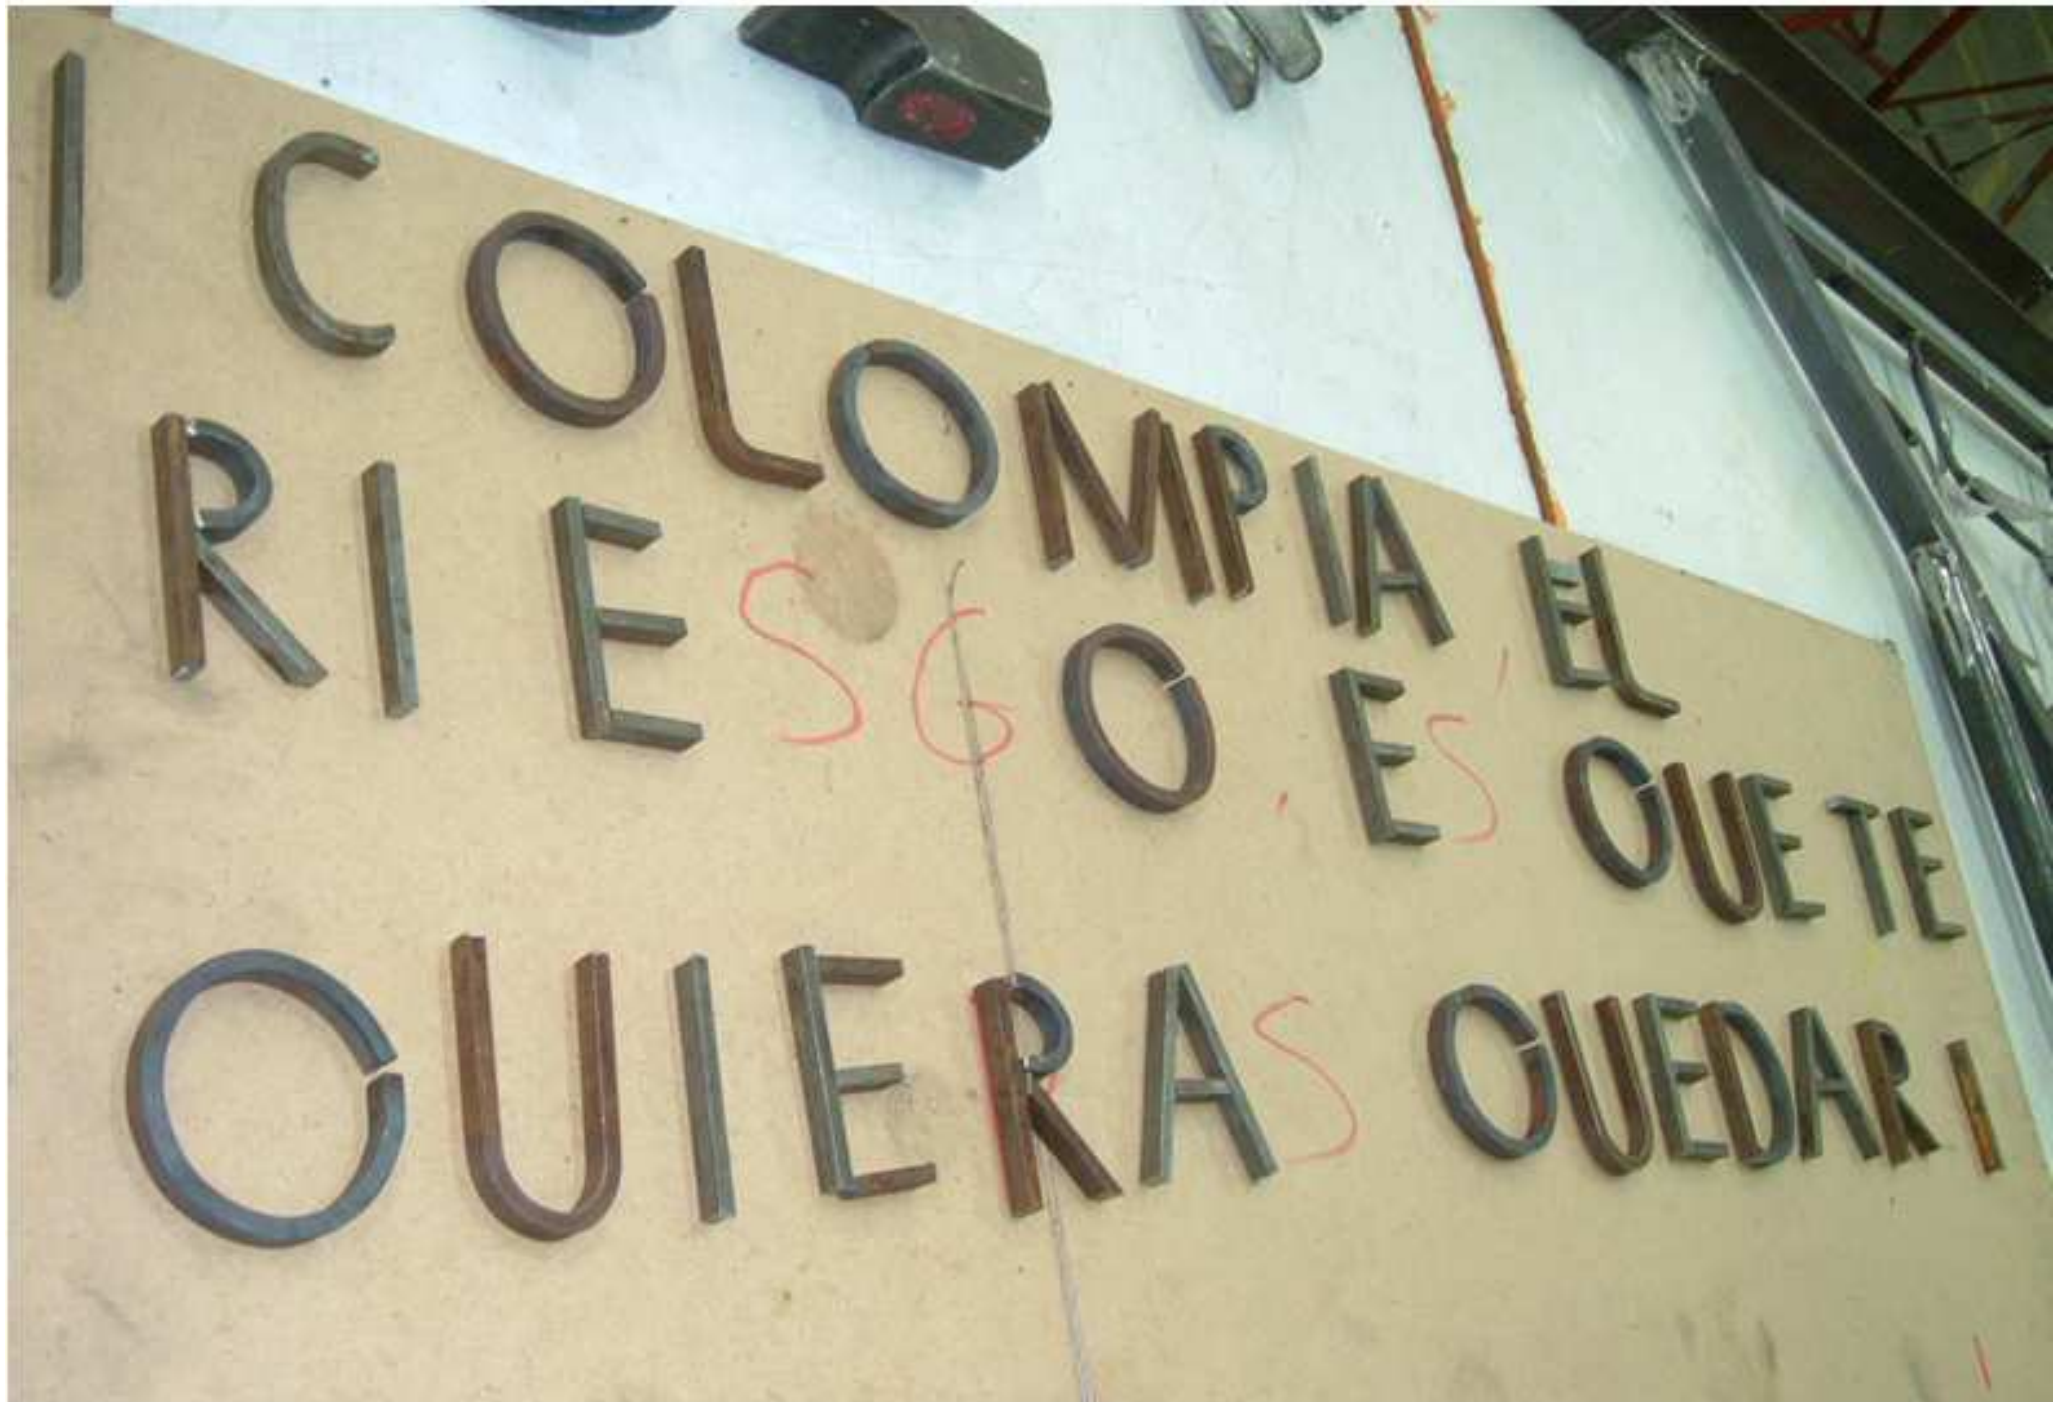 I COLOMPIA EL
RIESGO ES OUE TE
OUIERAS OUEDAR I